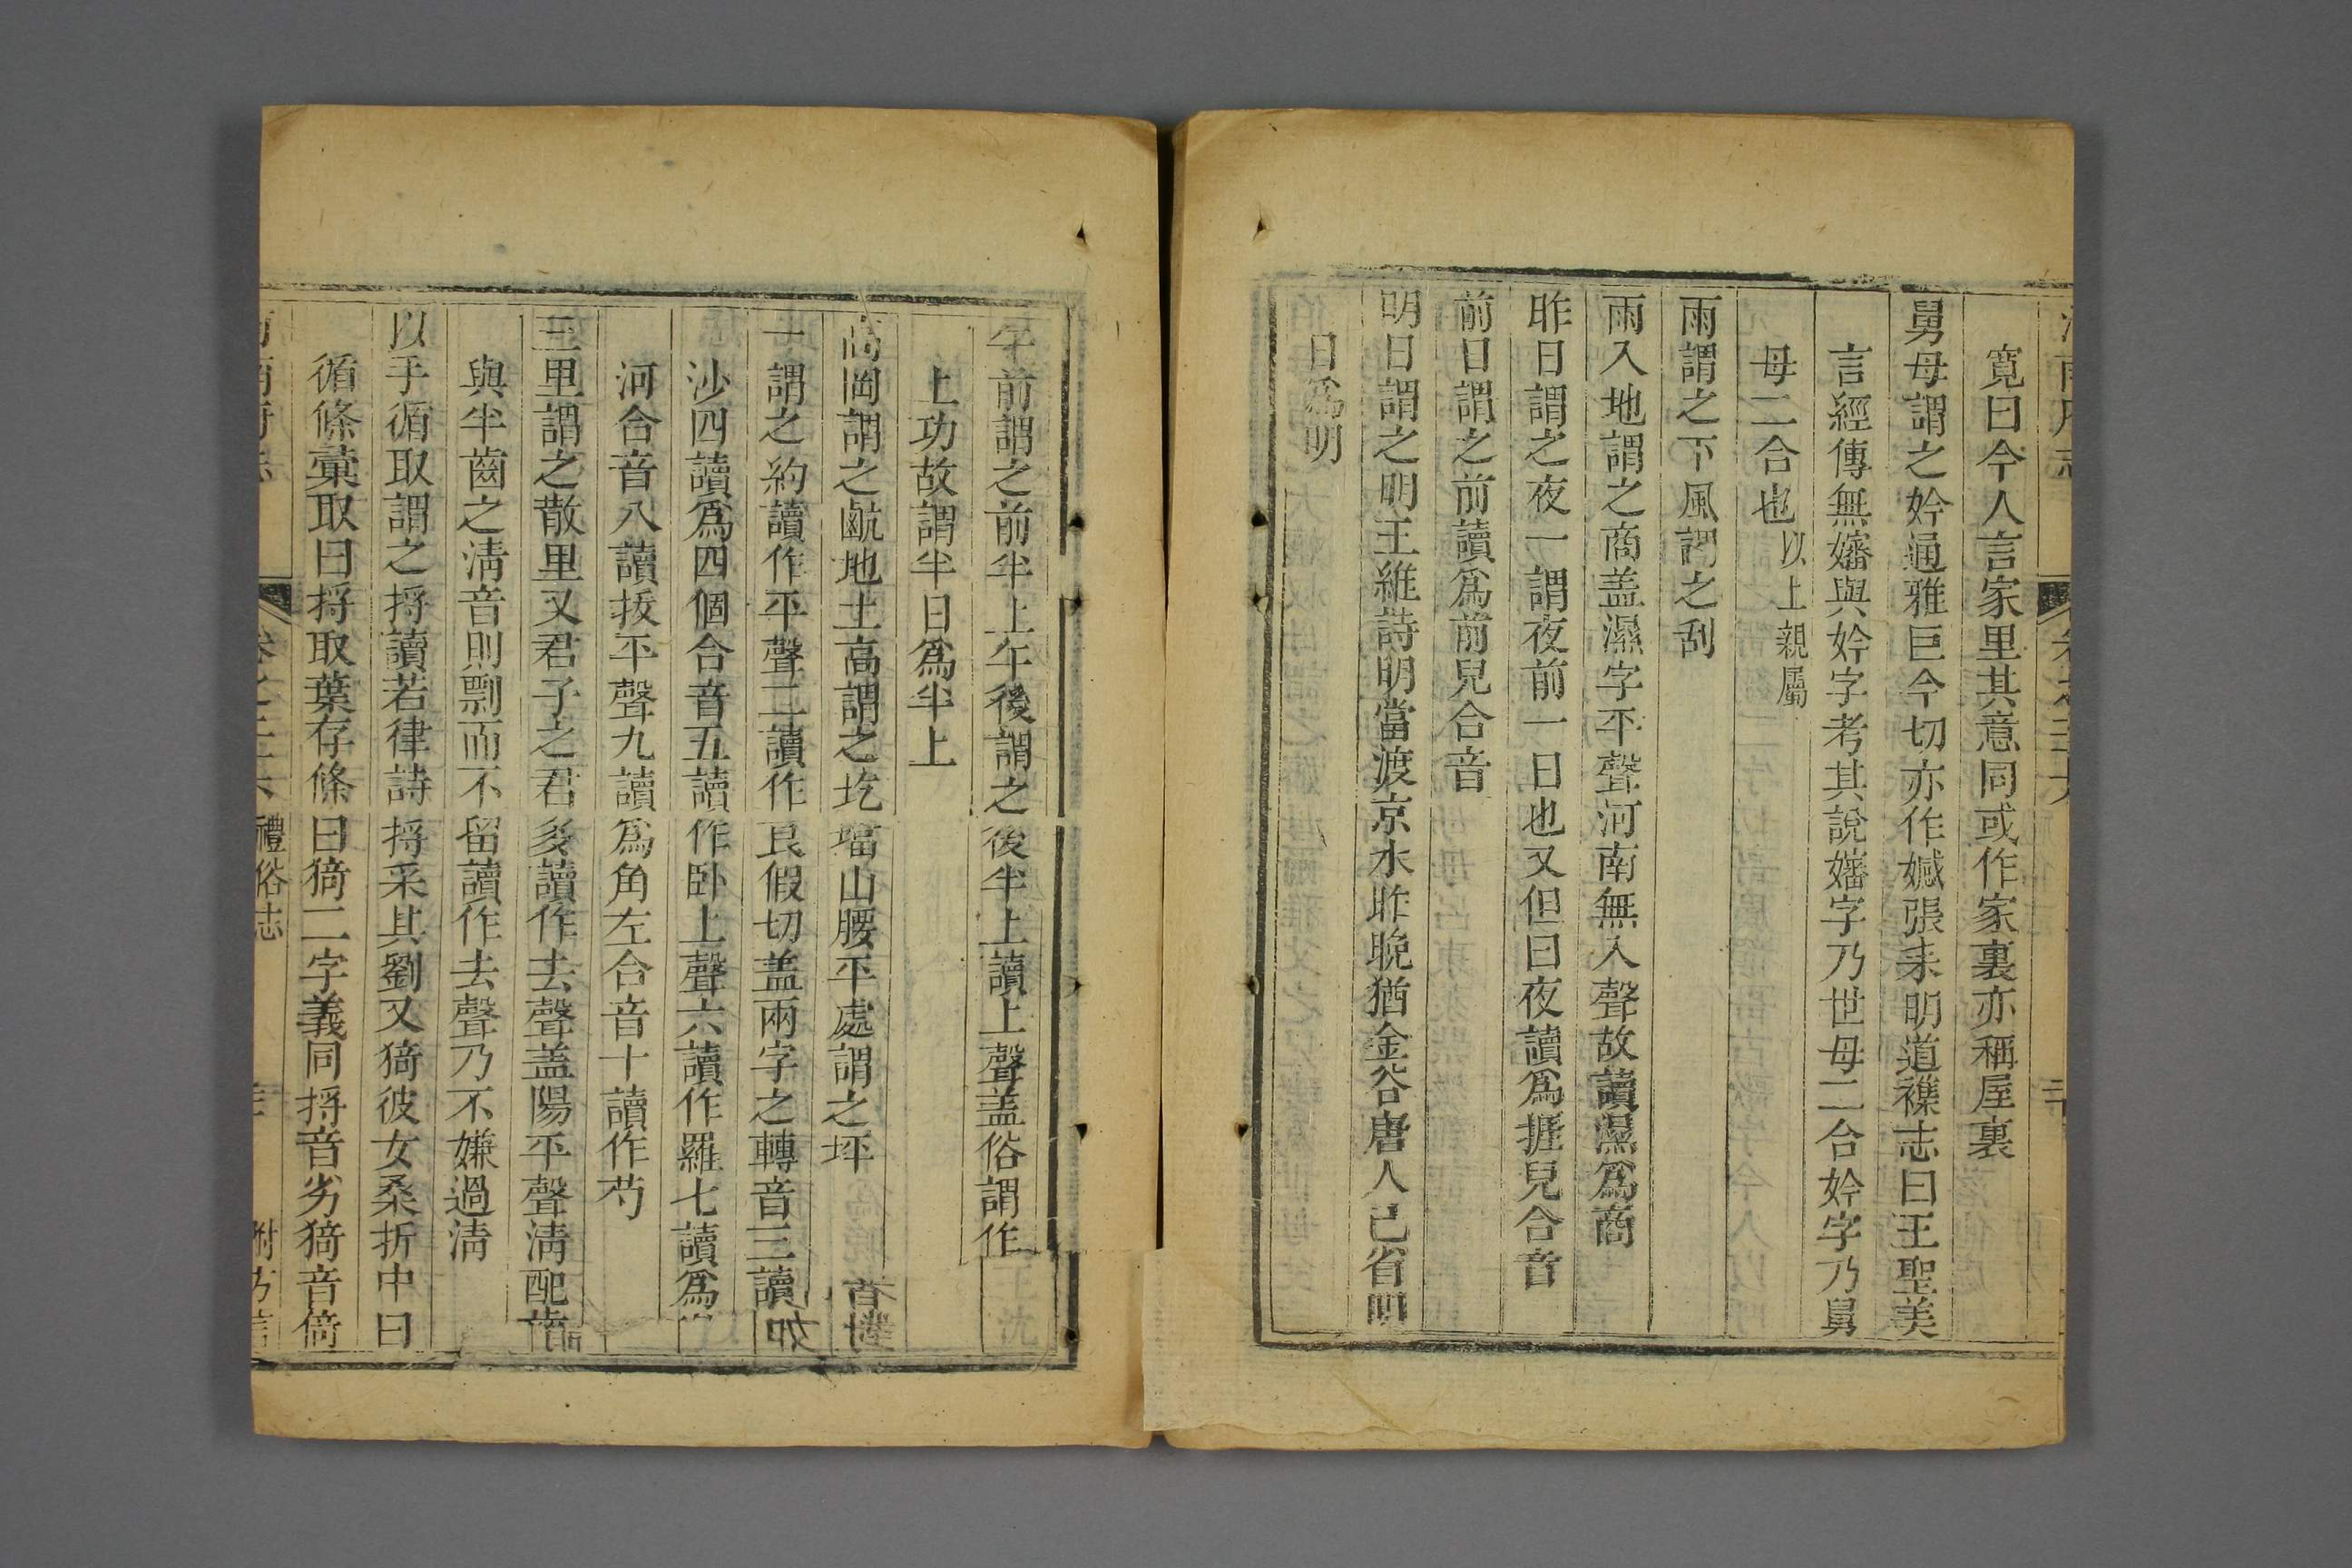 寬曰今人言家里其意同或作家裏亦稱屋裏
舅母謂之妗通雅巨今切亦作㜝張耒明道襍志曰王聖美
言經傳無嬸與妗字考其說嬸字乃世母二合妗字乃舅
母二合也以上親屬
雨謂之下風謂之刮
雨入地謂之商盖濕字平聲河南無入聲故讀濕爲商
昨日謂之夜一謂夜前一日也又但曰夜讀爲捱兒合音
前日謂之前讀爲前兒合音
明日謂之明王維詩明當渡京水昨晚猶金谷唐人已省明
日爲明
午前謂之前半上午後謂之後半上讀上聲盖俗謂作
上功故謂半日爲半上
高岡謂之㽘地土高謂之圪墖山腰平處謂之坪
一謂之約讀作平聲二讀作良假切盖兩字之轉音三讀如
沙四讀爲四個合音五讀作卧上聲六讀作羅七讀爲
河合音八讀拔平聲九讀爲角左合音十讀作芍
三里謂之散里又君子之君多讀作去聲盖陽平聲淸配齒
與半齒之淸音則剽而不留讀作去聲乃不嫌過淸
以手循取謂之捋讀若律詩捋采其劉又猗彼女桑折中曰
循條彚取曰捋取葉存條曰猗二字義同捋音劣猗音倚
禮俗志
附方言